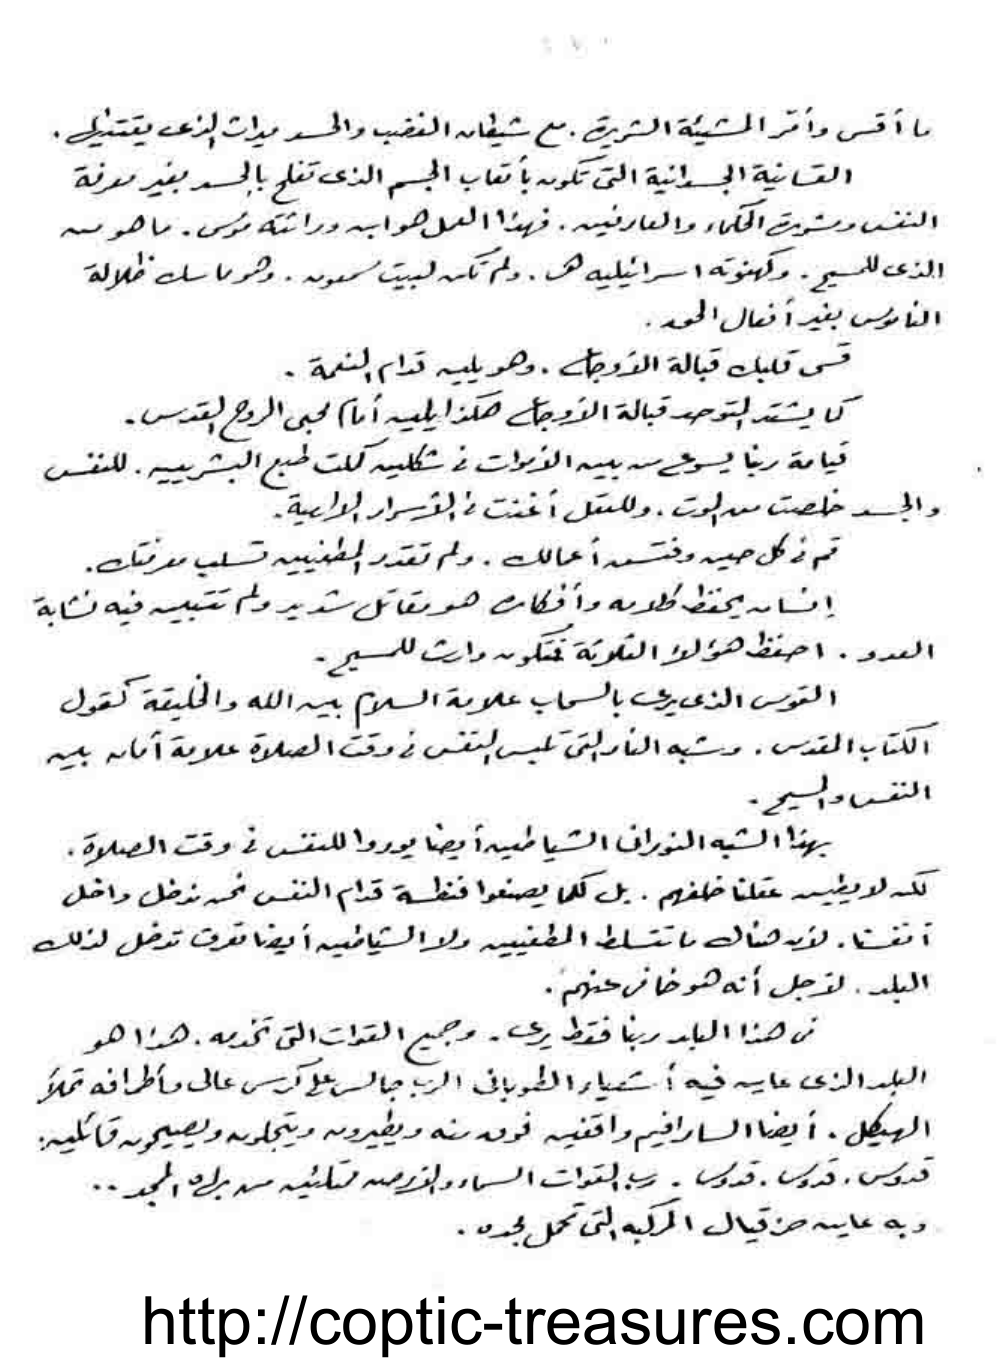 ما أقسى وأمّر المشيئة الشريرة. مع شيطان الغضب والحسد ميراث الذى يقتنيها.
القسانية الجسدانية التى تكون بأتعاب الجسم الذى تفلح بالجسد بغير معرفة
النفس ومشورة الحكماء والعارفين. فهذا العمل هو ابن وراثته موسى. ما هو من
الذى للمسيح. وكهنوته اسرائيليه هى. ولم تكن لبيت سمعون. وهو ماسك ظلالة
الناموس بغير أفعال الحق.
قسى قلبك قبالة الأوجاع. وهو يلين قدام النعمة.
كما يشتد المتوحد قبالة الأوجاع هكذا يلين أمام محبى الروح القدس.
قيامة ربنا يسوع من بين الأموات فى شكلين كملت طبع البشريين. للنفس
والجسد خلصت من الموت. وللعقل أغنت فى الأسرار الالهية.
قم فى كل حين وفتش أعمالك. ولم تقدر المطغيين تسلب معرفتك.
إنسان يحفظ كلامه وأفكاره هو مقاتل شديد ولم تتبين فيه نشابة
العدو. احفظ هؤلاء الثلاثة فتكون وارث للمسيح.
القوس الذى يرى بالسحاب علامة السلام بين الله والخليقة كقول
الكتاب المقدس. وشبه النار التى تلبس النفس فى وقت الصلاة علامة أمان بين
النفس والمسيح.
بهذا الشبه النورانى الشياطين أيضا يوروا للنفس فى وقت الصلاة.
لكن لا يطيس عقلنا خلفهم. بل كلما يصنعوا فنطسة قدام النفس نحن ندخل داخل
أنفسنا. لأن هناك ما تتسلط المطغيين ولا الشياطين أيضا تعرف تدخل لذلك
البلد. لأجل أنه هو خافى عنهم.
فى هذا البلد ربنا فقط يرى. وجميع القوات التى تخدمه. هذا هو
البلد الذى عاين فيه أشعياء الطوبانى الرب جالس على كرسى عالى وأطرافه تملأ
الهيكل. أيضا السارافيم واقفين فوق منه ويطيرون ويتجلون ويصيحون قائلين:
قدوس، قدوس، قدوس. رب القوات السماء والأرض ممتلئين من بهاء المجد..
وبه عاين حزقيال المركبه التى تحمل مجده.
http://coptic-treasures.com